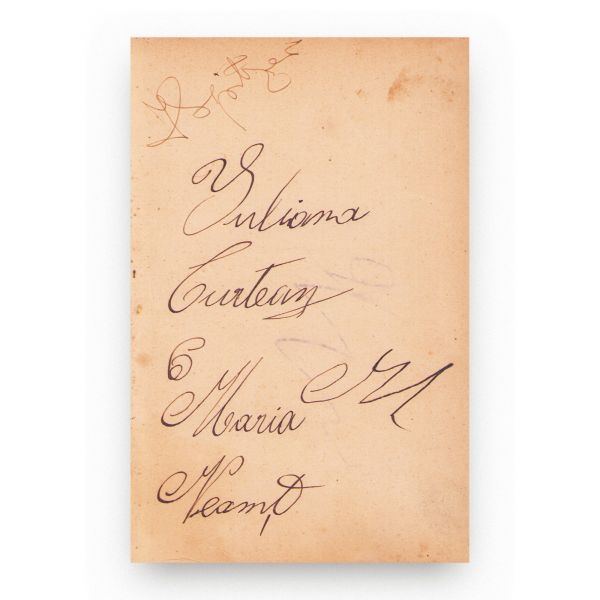 Yuliana
Curtean
6
Maria M
Neamț